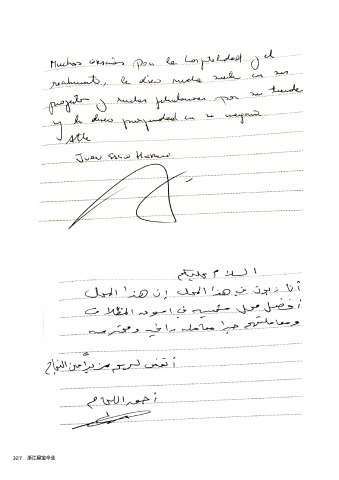 Muchas gracias por la hospitalidad y el
tratamiento, le deseo mucha suerte en sus
proyectos y muchas felicitaciones por su tienda
y le deseo prosperidad en su negocio
Atte
Juan
السلام عليكم
أنا زبون في هذا المحل إن هذا المحل
أفضل محل شمسية في اسوق المظلات
ومعاملتهم جدا معامله راقي ومحترمه
أتمنى لهم مزيداً من النجاح
327 浙江星宝伞业